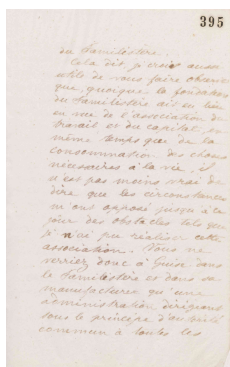 395
du Familistère.
Cela dit, je crois aussi
utile de vous faire observer
que, quoique la fondation
du Familistère ait eu lieu
en vue de l'association du
travail et du capital, en
même temps que de la
consommation des choses
nécessaires à la vie, il
n'est pas moins vrai de
dire que les circonstances
m'ont opposé jusqu'à ce
jour des obstacles tels que
je n'ai pu réaliser cette
association. Vous ne
verriez donc à Guise dans
le Familistère et dans sa
manufacture qu'une
administration dirigeant
sous le principe d'autorité
commun à toutes les